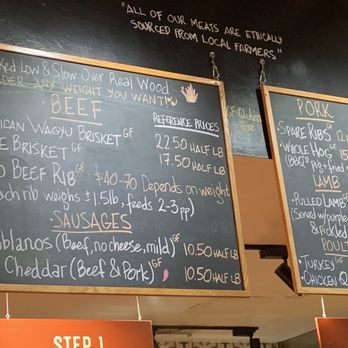 "ALL OF OUR MEATS ARE ETHICALLY
SOURCED FROM LOCAL FARMERS"
Low & Slow Over Real Wood
ANY WEIGHT YOU WANT!
BEEF
REFERENCE PRICES
WAGYU BRISKET GF 22.50 HALF LB
BRISKET GF 17.50 HALF LB
BEEF RIB GF $40-70 Depends on weight
rib weighs ± 1.5 lb, feeds 2-3 pp)
SAUSAGES
(Beef, no cheese, mild) GF 10.50 HALF LB
Cheddar (Beef & Pork) GF 10.50 HALF LB
STEP 1
GF=Gluten
Free
PORK
SPARE RIBS GF
WHOLE HOG
LAMB
PULLED LAMB GF
(Served w/
& pickled
TURKEY GF
CHICKEN